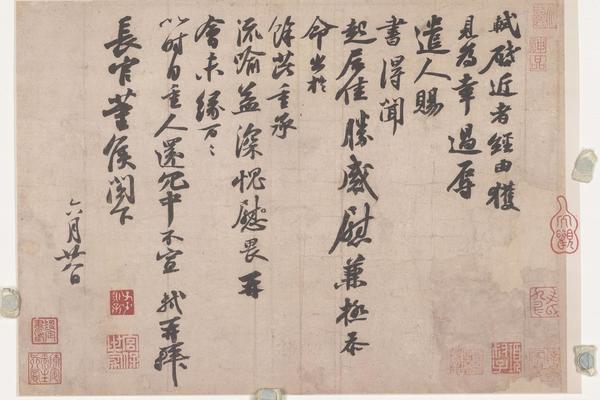 軾啓近者經由獲
見為幸過辱
遣人賜
書得聞
起居佳勝感慰兼極忝
命出於
餘芘重承
流喻益深愧慰畏再
會未緣万〻
以時自重人還冗中不宣 軾再拜
長官董侯閣下
六月廿八日